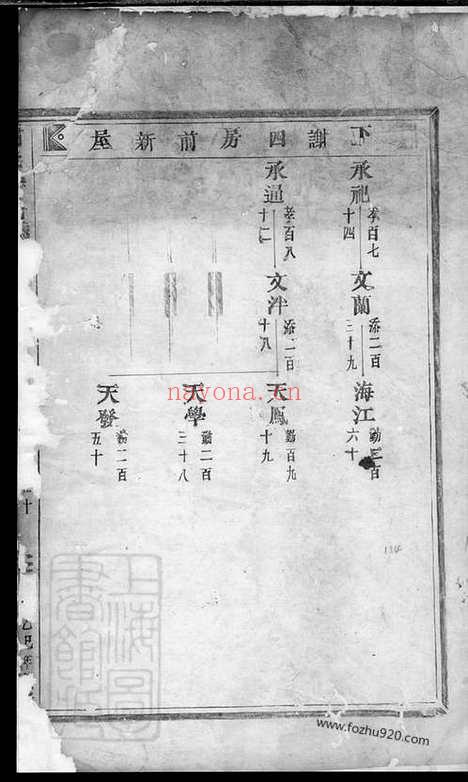 下謝四房前新屋
承祀
孝百七
十四
文蘭
添二百
三十九
海江
勛三百
六十
承通
孝百八
十二
文泮
添二百
十八
天鳳
勛百九
十九
天學
勛二百
三十八
天發
勛二百
五十
134
上海圖
書館藏
nayona.cn
www.fozhu920.com